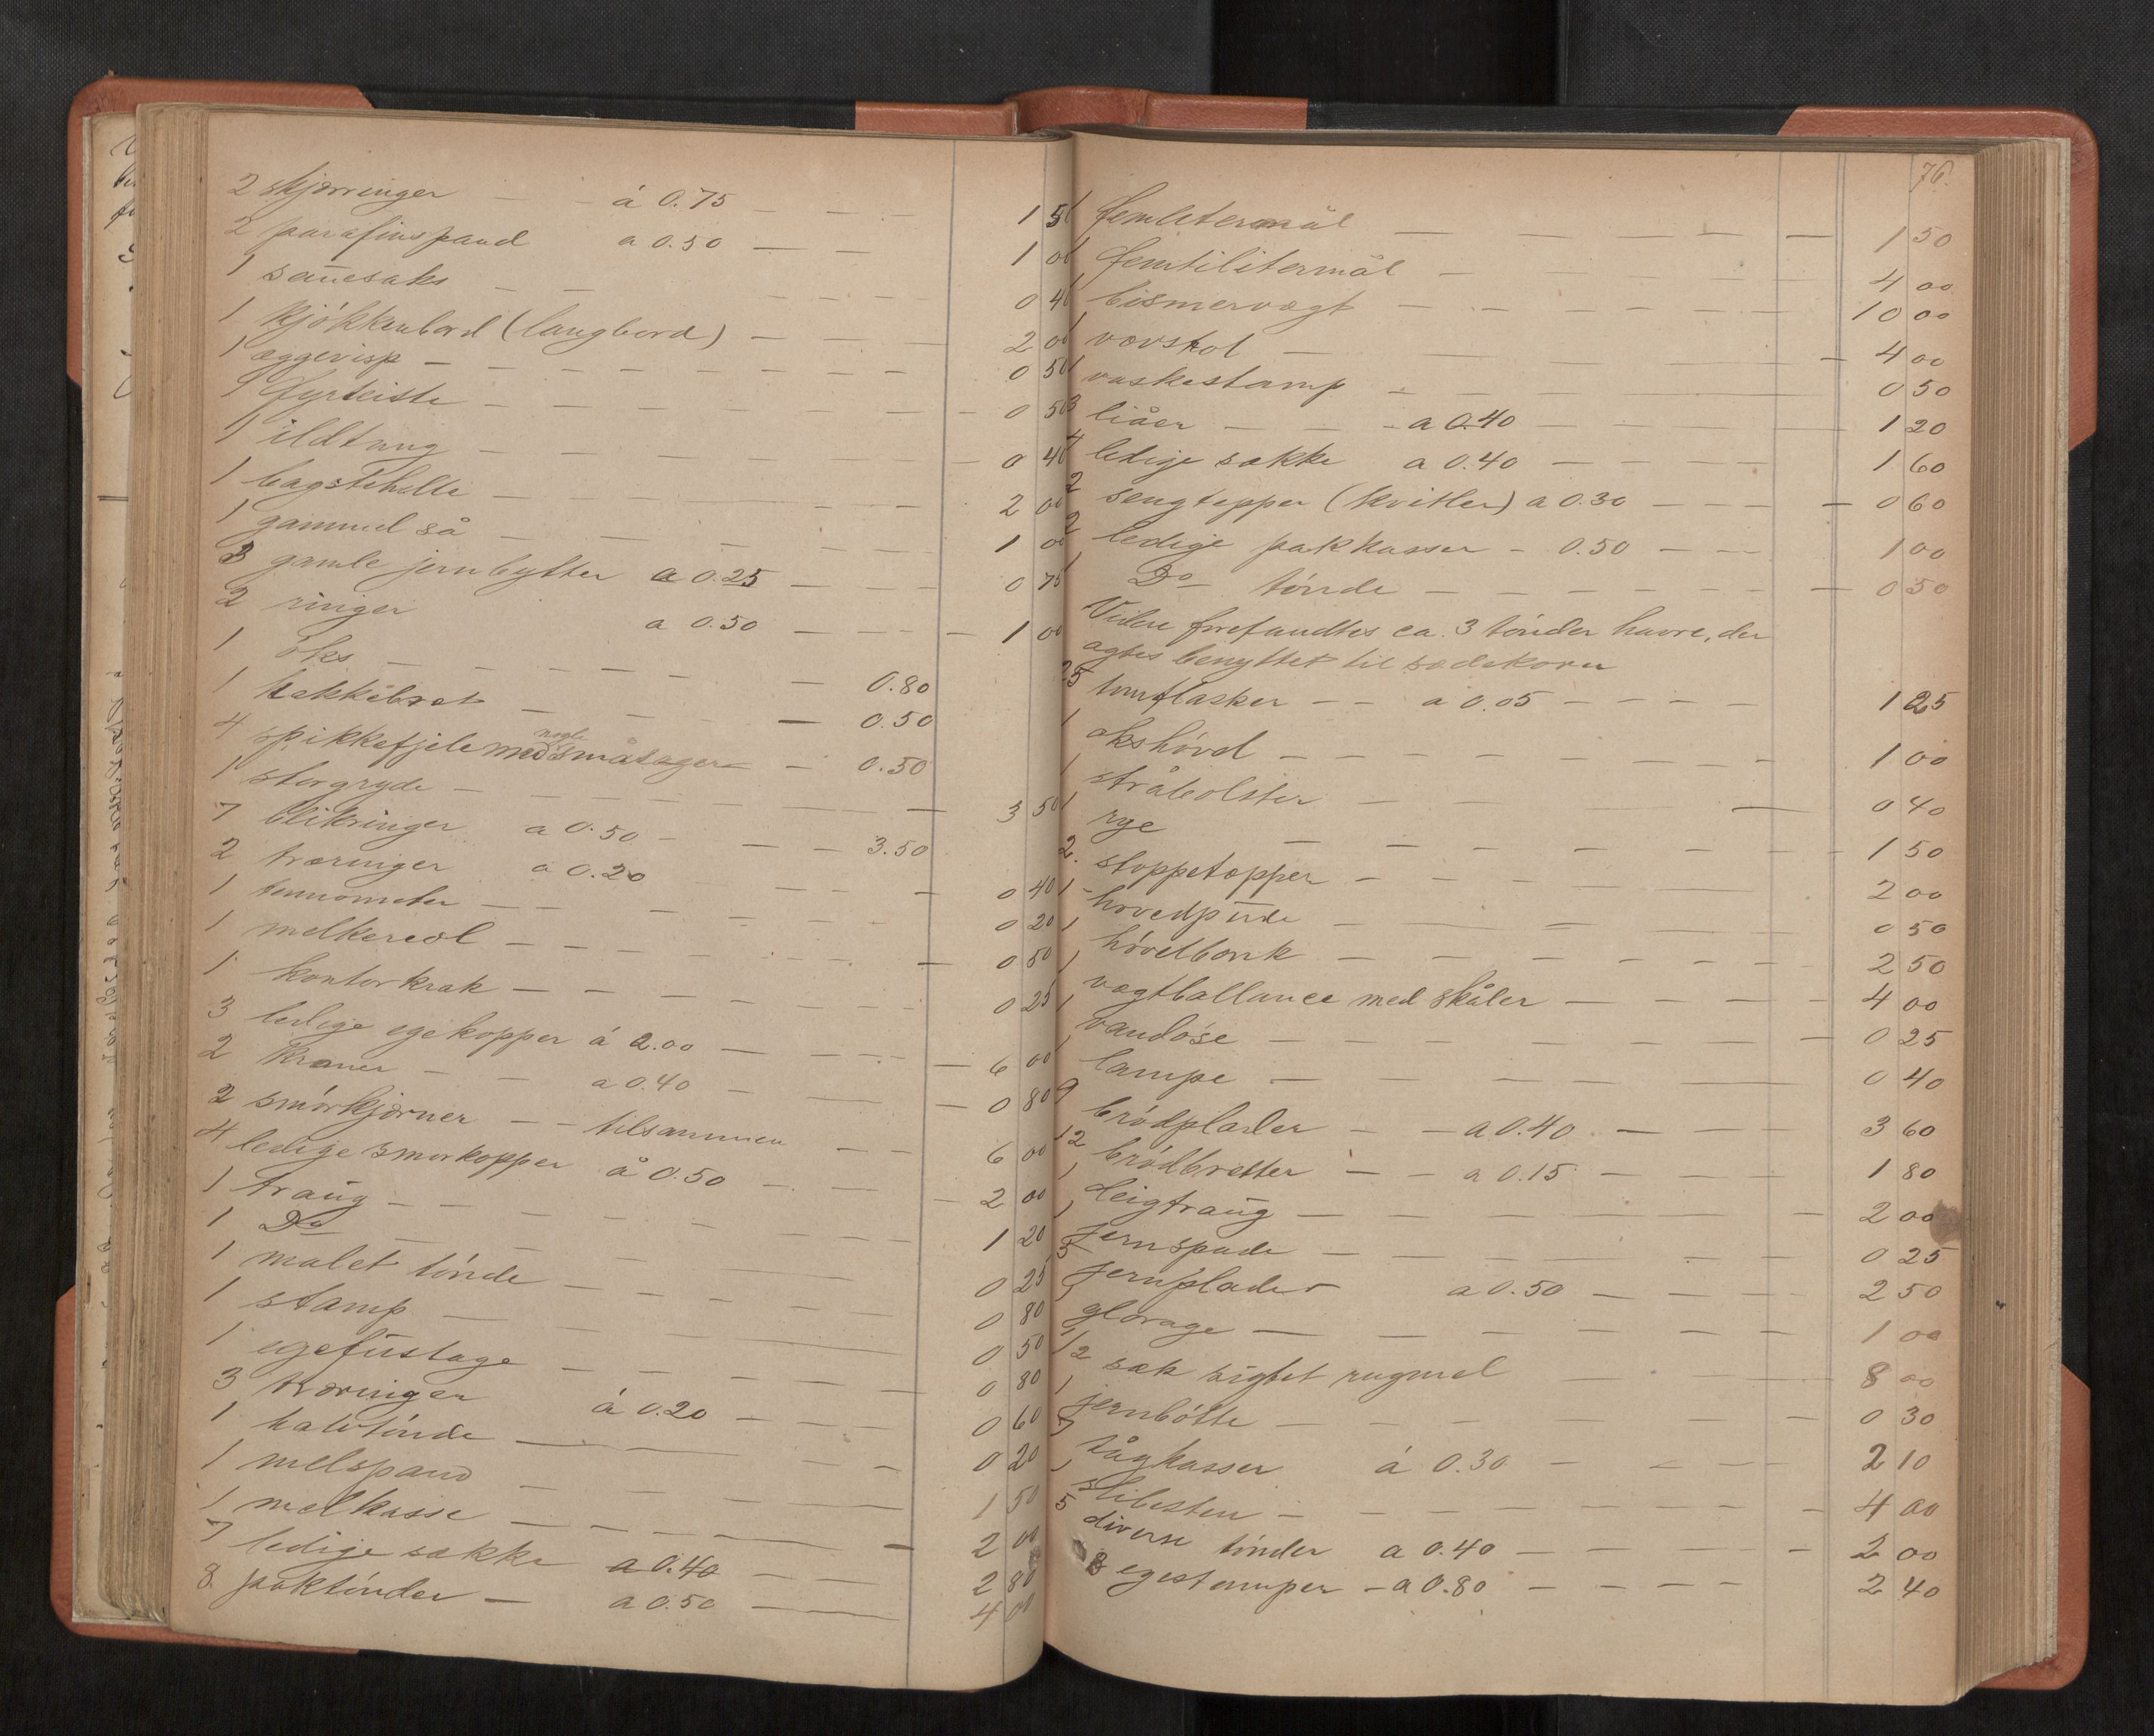 2 skjæringer — á 0.75 — — — 1 50
2 parafinspand a 0.50 — — 1 00
1 sauesaks — — — — — 0 40
1 kjøkkenbord (langbord) — — — 2 00
1 æggevisp — — — — — 0 50
1 fyrkiste — — — — — 0 50
1 ildtang — — — — — 0 40
1 bagstehelle — — — — — 2 00
1 gammel så — — — — — 1 00
3 gamle jernbytter a 0.25 — — 0 75
2 ringer a 0.50 — — 1 00
1 øks — — — — — 0.80
1 hakkebræt — — — — 0.50
4 spikkefjele med nogle småsager — 0.50
1 storgryde — — — — — 3 50
7 blikringer a 0.50 — — — 3.50
2 træringer a 0.20 — — — 0 40
1 termometer — — — — — 0 20
1 melkereol — — — — — 0 50
1 kontorkrak — — — — — 0 25
3 ledige egekopper á 2.00 — — — 6 00
2 kraner — — a 0.40 — — 0 80
2 smørkjærner — — tilsammen — — 6 00
4 ledige smørkopper á 0.50 — — 2 00
1 traug — — — — — 1 20
1 Do — — — — — 0 25
1 malet tønde — — — — 0 80
1 stamp — — — — — 0 50
1 egefustage — — — — 0 80
3 træringer á 0.20 — — 0 60
1 halvtønde — — — — 0 20
1 melspand — — — — 1 50
1 melkasse — — — — 2 00
7 ledige sække a 0.40 — — 2 80
8 paktønder — a 0.50 — — 4 00
76.
1 femlitermål — — — — — 1 50
1 femtilitermål — — — — — 4 00
1 bismervægt — — — — — 10 00
1 vævstol — — — — — 4 00
1 vaskestamp — — — — — 0 50
3 liåer — — a 0.40 — — — 1 20
4 ledige sække a 0.40 — — — 1 60
2 sengtepper (kvitler) a 0.30 — — — 0 60
2 ledige pakkasser — 0.50 — — 1 00
1 Do tønde — — — — — 0 50
Videre forefandtes ca. 3 tønder havre, der
agtes benyttet til sædekorn
25 tomflasker — — a 0.05 — — — 1 25
1 okshøvd — — — — — 1 00
1 stråbolster — — — — — 0 40
1 rye — — — — — 1 50
2. stoppetæpper — — — — — 2 00
1 hovedpude — — — — — 0 50
1 høvelbænk — — — — — 2 50
1 vægtballance med skåler — — — 4 00
1 vandøse — — — — — 0 25
1 lampe — — — — — 0 40
9 brødplader — — a 0.40 — — 3 60
12 brødbretter — — a 0.15 — — 1 80
1 deigtraug — — — — — 2 00
1 jernspade — — — — — 0 25
5 jernplader a 0.50 — — — 2 50
1 glorage — — — — — 1 00
1/2 sæk sigtet rugmel — — 8 00
1 jernbøtte — — — — — 0 30
7 kasser á 0.30 — — — 2 10
1 slibesten — — — — — 4 00
5 diverse tønder a 0.40 — — — 2 00
3 egestamper — a 0.80 — — — 2 40